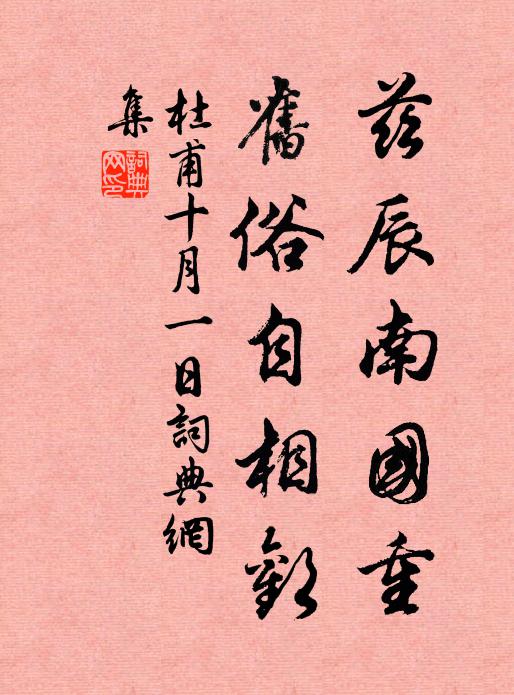 茲辰南國重
舊俗自相歡
杜甫十月一日詞典網
集
詞典
网印